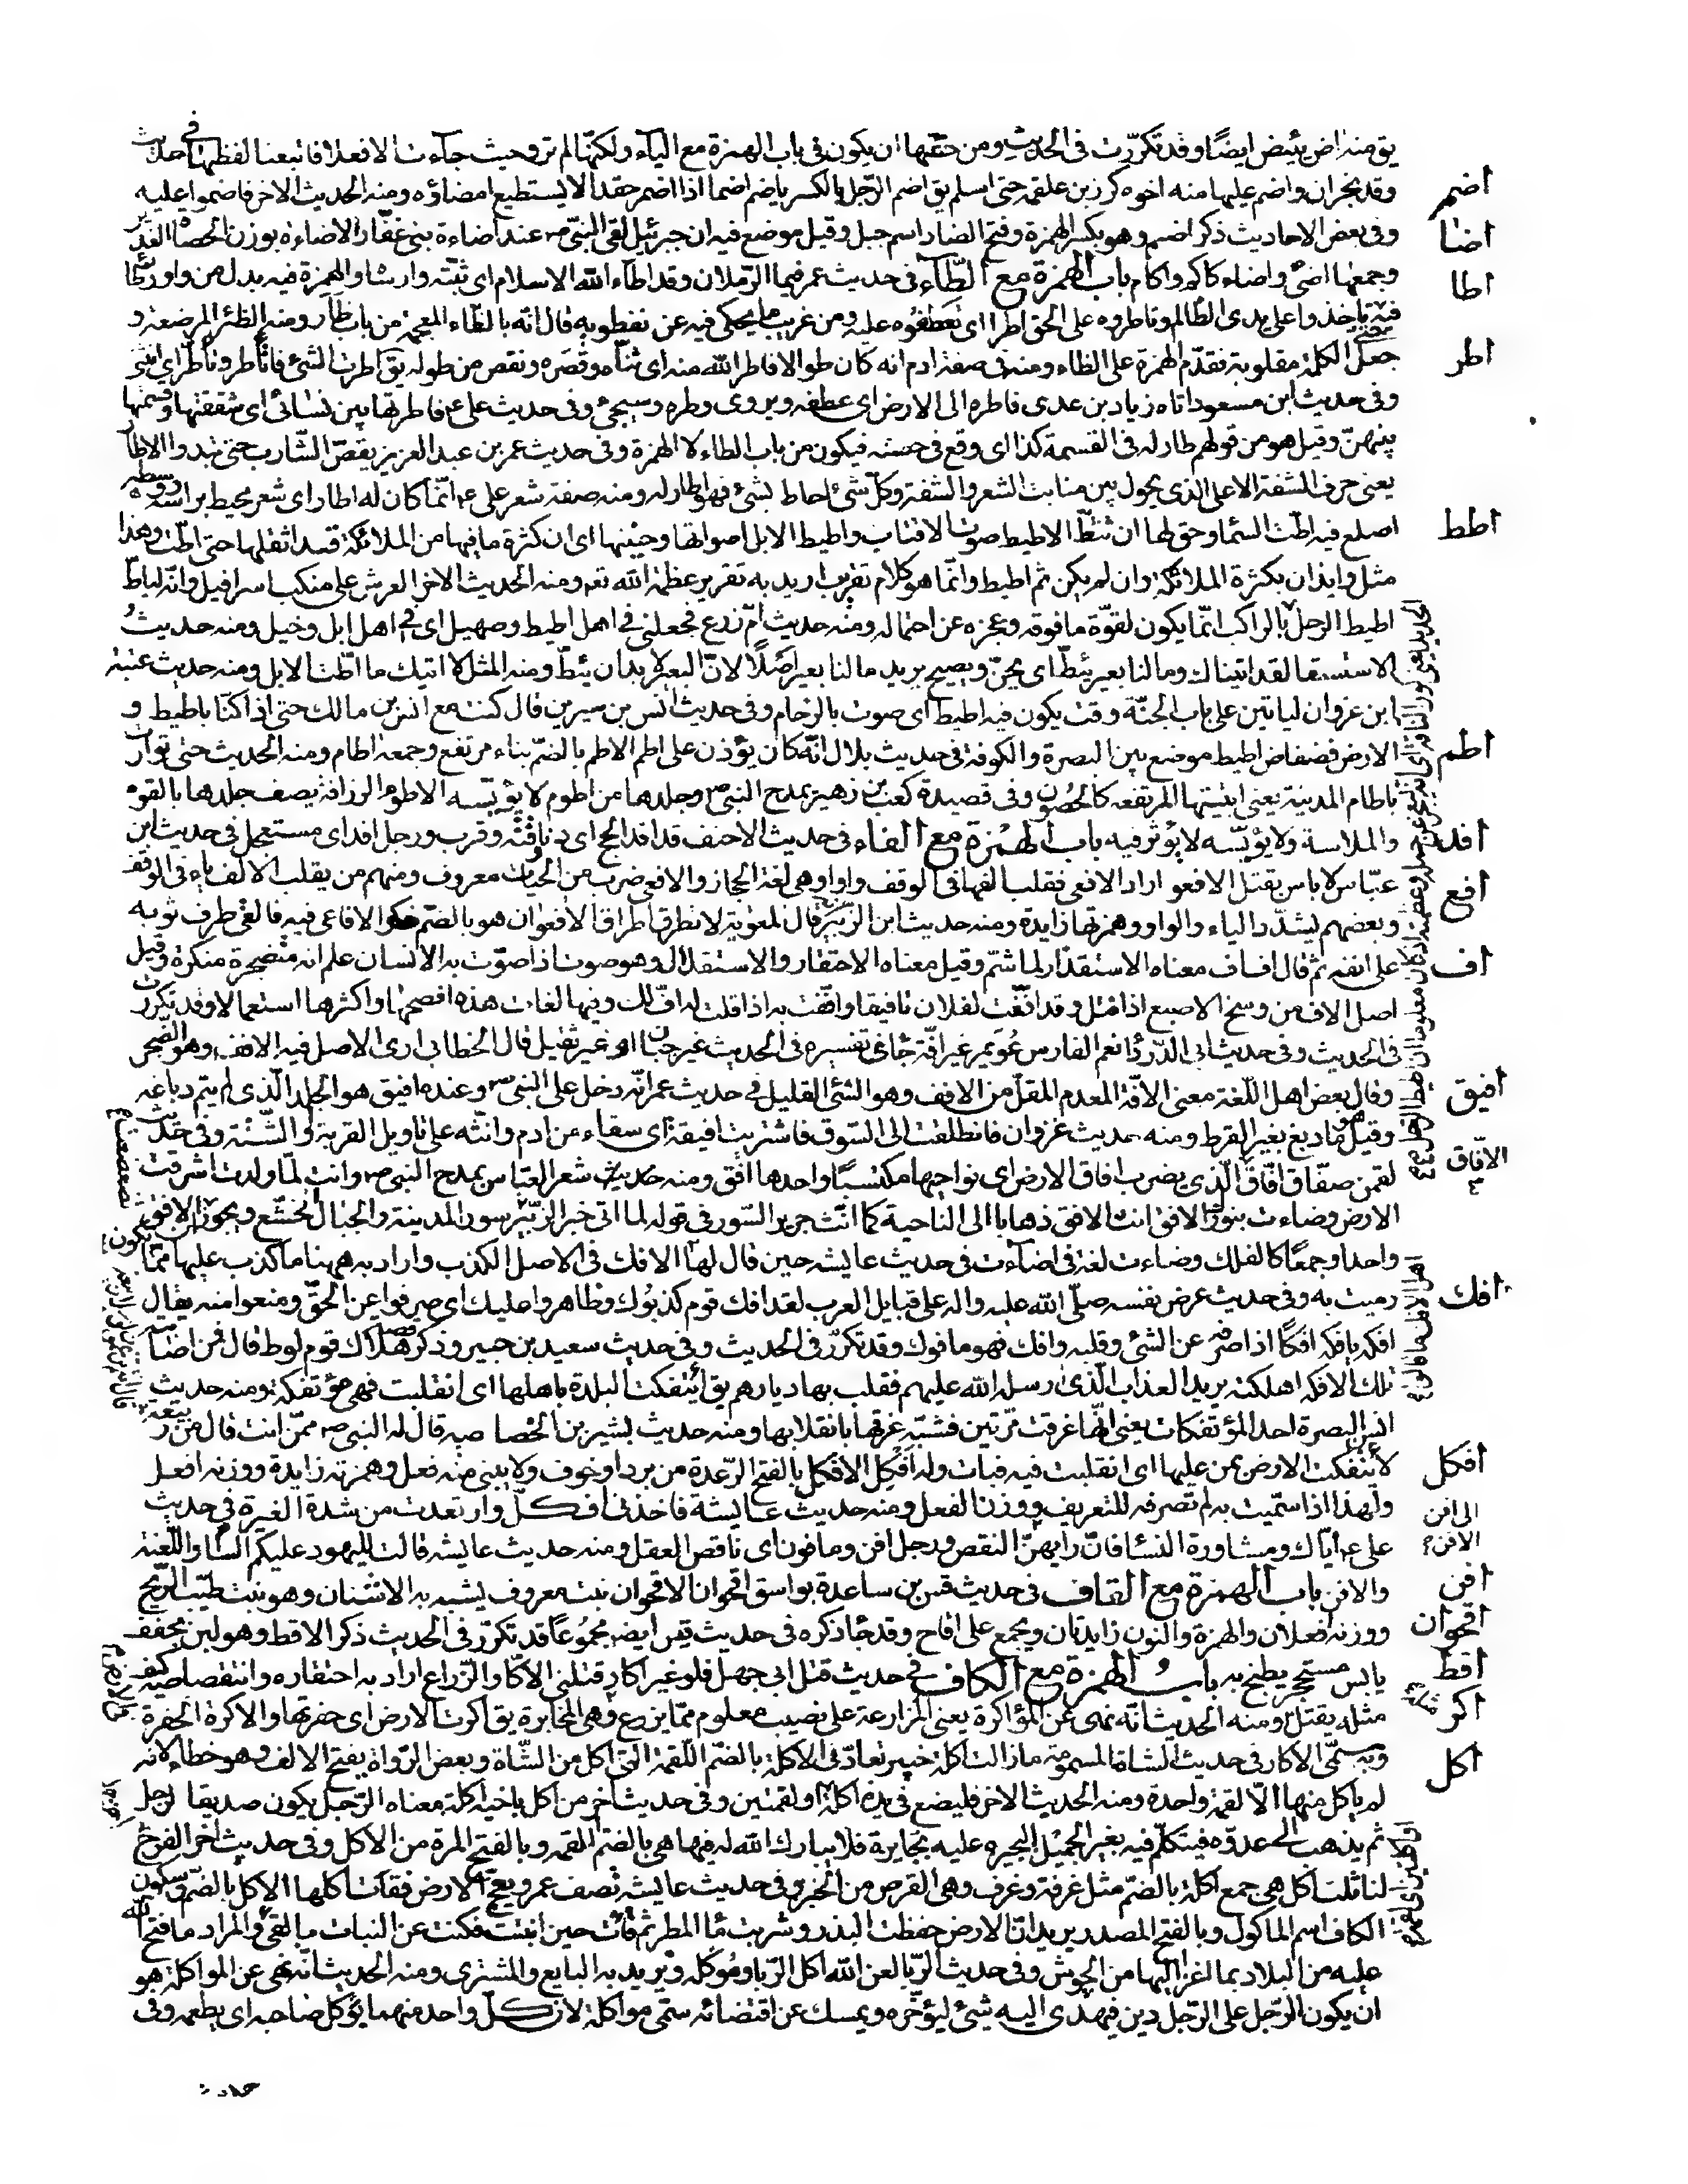 يق منه اض يئيض ايضًا وقد تكرّرت فى الحديث ومن حقّها ان يكون فى باب الهمزة مع الياء ولكنّها لم ترو حيث جآءت الا فعلا فاتبعنا لفظها فى حديث
اضم وقد نجران واضم عليها منه اخوه كرز بن علقمة حتى اسلم يق اضم الرّجل بالكسر ياضم اضما اذا اضمر حقدا لا يستطيع امضاؤه ومنه الحديث الاخر فاضموا عليه
اضا وفى بعض الاحاديث ذكر اضم وهو بكسر الهمزة وفتح الضاد اسم جبل وقيل موضع فيه ان جبرئيل لقى النبى ص عند اضاءة بنى غفّار الاضاءة بوزن الحصاة الغدير
اطا وجمعها اضىً واضاء كاكم واكام باب الهمزة مع الطّآء فى حديث عمر فيما الرّملان وقد اطآء الله الاسلام اى ثبّته وارساه والهمزة فيه بدل من واو وطا
فيه ياخذوا على يدى الظالم وتاطروه على الحق اطرا اى تعطفوه عليه ومن غريب ما يحكى فيه عن نفطويه قال انه بالظاء المعجمة من باب ظأر ومنه الظئر المرضعة و
اطر جعل الكلمة مقلوبة فقدّم الهمزة على الظاء ومنه فى صفة ادم انه كان طوالا فاطر الله منه اى ثنّاه وقصّره ونقص من طوله يق اطرت الشئ فانأطر وتأطر اى انثنى
وفى حديث ابن مسعود اتاه زياد بن عدى فاطره الى الارض اى عطفه ويروى وطره وسيجئ وفى حديث على ع فاطرتها بين نسائى اى شققتها وقسمتها
بينهنّ وقيل هو من قولهم طار له فى القسمة كذا اى وقع فى حصته فيكون من باب الطاء لا الهمزة وفى حديث عمر بن عبد العزيز يقصّ الشّارب حتى يبدو الاطار
يعنى حرف الشفة الاعلى الذى يحول بين منابت الشعر والشفة وكلّ شئ احاط بشئ فهو اطار له ومنه صفة شعر على ع انّما كان له اطار اى شعر محيط براسه ووسطه
اطط اصلع فيه اطّت السّماء وحق لها ان تئطّ الاطيط صوت الاقتاب واطيط الابل اصواتها وحنينها اى ان كثرة ما فيها من الملائكة قد اثقلها حتى اطّت وهذا
مثل وايذان بكثرة الملائكة وان لم يكن ثم اطيط وانّما هو كلام تقريب اريد به تقرير عظمة الله تعه ومنه الحديث الاخر العرش على منكب اسرافيل وانّه لياطّ
اطيط الرحل بالراكب انّما يكون لقوّة ما فوقه وعجزه عن احتماله ومنه حديث امّ زرع فجعلنى فى اهل اطيط وصهيل اى فى اهل ابل وخيل ومنه حديث
الاستسقا لقد اتيناك وما لنا بعير يئطّ اى يحنّ ويصيح يريد ما لنا بعير اصلًا لانّ البعير لا بد ان يئطّ ومنه المثل لا اتيك ما اطّت الابل ومنه حديث عتبة
ابن غزوان لياتين على باب الجنّة وقت يكون فيه اطيط اى صوت بالزحام وفى حديث انس بن سيرين قال كنت مع انس بن مالك حتى اذا كنّا باطيط و
اطم الارض فضفاض اطيط موضع بين البصرة والكوفة فى حديث بلال انّه كان يؤذن على اطم الاطم بالضمّ بناء مرتفع وجمعه اطام ومنه الحديث حتى توارت
باطام المدينة يعنى ابنيتها المرتفعه كالحُصُون وفى قصيدة كعب بن زهير يمدح النبى ص وجلدها من اطوم لا يؤيّسه الاطوم الزرافة يصف جلدها بالقوه
افد والملاسة ولا يؤيّسه لا يؤثر فيه باب الهَمْزة مع الفاء فى حديث الاحنف قد افد الحج اى دنا وقته وقرب ورجل افد اى مستعجل فى حديث ابن
افع عبّاس لا باس بقتل الافعو اراد الافعى فقلب الفها فى الوقف واوا وهى لغة الحجاز والافعى ضرب من الحيّات معروف ومنهم من يقلب الالف ياء فى الوقف
وبعضهم يشدّد الياء والواو وهمزتها زايدة ومنه حديث ابن الزّبير قال لمعوية لا تطرق اطراق الافعوان هو بالضّم ذكر الافاعى فيه فالقى طرف ثوبه
اف على انفه ثم قال اف اف معناه الاستقذار لما شمّ وقيل معناه الاحتقار والاستقلال وهو صوت اذا صوّت به الانسان علم انه متضجر منكره وقيل
اصل الاف من وسخ الاصبع اذا فتل وقد افّفت لفلان تافيفا وافّفت به اذا قلت له افّ لك وفيها لغات هذه افصحها واكثرها استعمالا وقد تكررت
فى الحديث وفى حديث ابى الدّرداء نعم الفارس عُوَيمر غير افّة جاء فى تفسيره فى الحديث غير جبان او غير ثقيل قال الخطابى ارى الاصل فيه الافف وهو الضجر
افيق وقال بعض اهل اللّغة معنى الافّة المعدم المقلّ من الافف وهو الشئ القليل فى حديث عمر انّه دخل على النبى ص وعنده افيق هو الجلد الّذى لم يتم دباغه
وقيل هو ما دبغ بغير القرظ ومنه حديث غزوان فانطلقت الى السّوق فاشتريت افيقة اى سقاء من ادم وانثه على تاويل القربة او الشّنّة وفى حديث
الافّاق لقمن صفّاق افّاق الّذى يضرب افاق الارض اى نواحيها مكتسبًا واحدها افق ومنه حديث شعر العبّاس يمدح النبى ص وانت لمّا ولدت اشرقت
الارض وضاءت بنورك الافق انث الافق ذهابا الى الناحية كما انّث جرير السّور فى قوله لما اتى خبر الزّبير سور المدينة والجبال الخشّع ويجوز ان يكون الافق
واحدا وجمعًا كالفلك وضاءت لغة فى اضآءت فى حديث عايشه حين قال لها الافك فى الاصل الكذب واراد به ههنا ما كذب عليها ممّا
افك رميت به وفى حديث عرض نفسه صلّى الله عليه واله على قبايل العرب لقد افك قوم كذبُوك وظاهروا عليك اى صرفوا عن الحقّ ومنعوا منه يقال
افكه يافكه افكًا اذا صرفه عن الشئ وقلبه وافك فهو مافوك وقد تكرّر فى الحديث وفى حديث سعيد بن جبير وذكر قصة هلاك قوم لوط قال فمن اصابته
تلك الافكه اهلكته يريد العذاب الّذى ارسله الله عليهم فقلب بها ديارهم يق ائتفكت البلدة باهلها اى انقلبت فهى مؤتفكة ومنه حديث
انس البصرة احد المؤتفكات يعنى انّها غرقت مرّتين فشبّه غرقها بانقلابها ومنه حديث بشير بن الخصاصيه قال له النبى ص ممّن انت قال من ربيعة
افكل لائتفكت الارض بمن عليها اى انقلبت فيه فبات وله افكل الافكل بالفتح الرّعدة من برد او خوف ولا يبنى منه فعل وهمزته زايدة ووزنه افعل
ولهذا اذا سمّيت به لم تصرفه للتعريف ووزن الفعل ومنه حديث عايشه فاخذنى افكلّ وارتعدت من شدة الغيرة فى حديث
على ع ايّاك ومشاورة النّساء فانّ رايهنّ الى افن الافن النقص ورجل افن ومافون اى ناقص العقل ومنه حديث عايشه قالت لليهود عليكم السّام واللّعنة
افن والافن باب الهمزة مع القاف فى حديث قس بن ساعدة بواسق اقحوان الاقحوان نبت معروف يشبه به الاسنان وهو نبت طيّب الرّيح
اقحوان ووزنه افعلان والهمزة والنون زايدتان ويجمع على اقاح وقد جاء ذكره فى حديث قس ايضه مجمُوعًا قد تكرّر فى الحديث ذكر الاقط وهو لبن مجفف
اقط يابس مستحجر يطبخ به باب الهمزة مع الكاف فى حديث قتل ابى جهل فلو غير اكار قتلنى الاكّار الزّراع اراد به احتقاره وانتقاصا كيف
اكر مثله يقتل ومنه الحديث انّه نهى عن المؤاكرة يعنى المزارعة على نصيب معلوم ممّا يزرع وهى المخابرة يق اكرت الارض اى حفرتها والاكرة الحفرة
اكل وبه سمّى الاكار فى حديث الشاة المسمومة ما زالت اكلة خيبر تعادّنى الاكلة بالضّم اللّقمة الّتى اكل من الشّاة وبعض الرّواة يفتح الالف وهو خطاء لانه
لم ياكل منها الّا لقمة واحدة ومنه الحديث الاخر فليضع فى يده اكلة او لقمتين وفى حديث اخر من اكل باخيه اكلة معناه الرّجل يكون صديقا لرجل
ثم يذهب الى عدوّه فيتكلّم فيه بغير الجميل ليجيزه عليه بجايزة فلا يبارك الله له فيها هى بالضّم اللّقمه وبالفتح المرة من الاكل وفى حديث اخر اخرج
لنا ثلث اكل هى جمع اكلة بالضّم مثل غرفة وغرف وهى القرص من الخبز وفى حديث عايشه تصف عمر وبعج الارض فقاءت اكلها الاكل بالضّم وسكون
الكاف اسم الماكول وبالفتح المصدر يريد انّ الارض حفظت البذر وشربت ماء المطر ثم قاءت حين انبتت فكنت عن النبات بالقئ والمراد ما فتح الله
عليه من البلاد بما اغزا اليها من الجيوش وفى حديث الرّبا لعن الله اكل الرّبا ومُوكله ويريد به البايع والمشترى ومنه الحديث انّه نهى عن المواكلة هو
ان يكون الرّجل على الرّجل دين فيهدى اليه شئ ليؤخّره ويمسك عن اقتضائه سمّى مواكلة لان كلّ واحد منهما يؤكل صاحبه اى يطعمه وفى
حديث